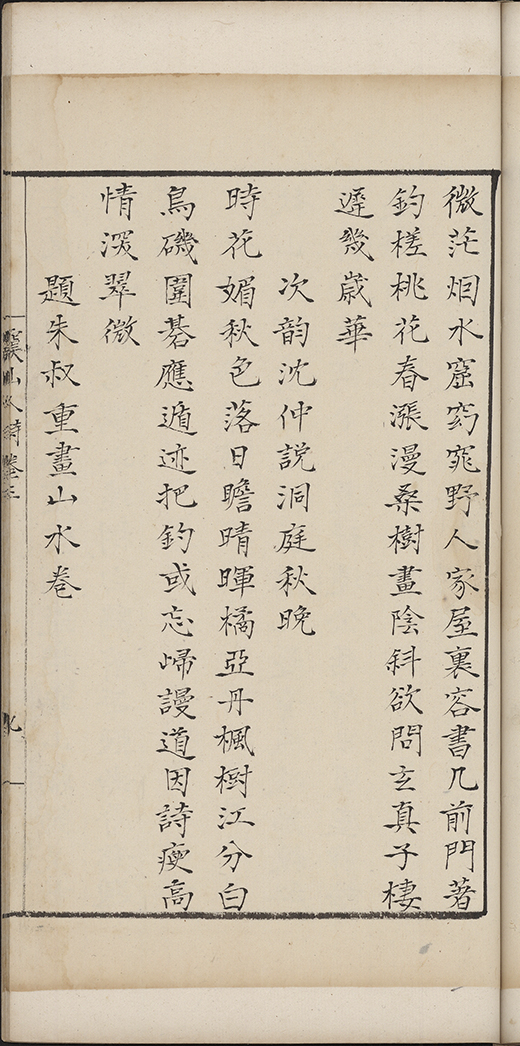 微茫烟水窟窈窕野人家屋裏容書几前門著
釣槎桃花春漲漫桑樹畫陰斜欲問玄真子棲
遲幾歲華
次韵沈仲説洞庭秋晚
時花媚秋色落日瞻晴暉橘亞丹楓樹江分白
鳥磯圍碁應遁迹把釣或忘歸謾道因詩瘦高
情深翠微
題朱叔重畫山水卷
山人詩